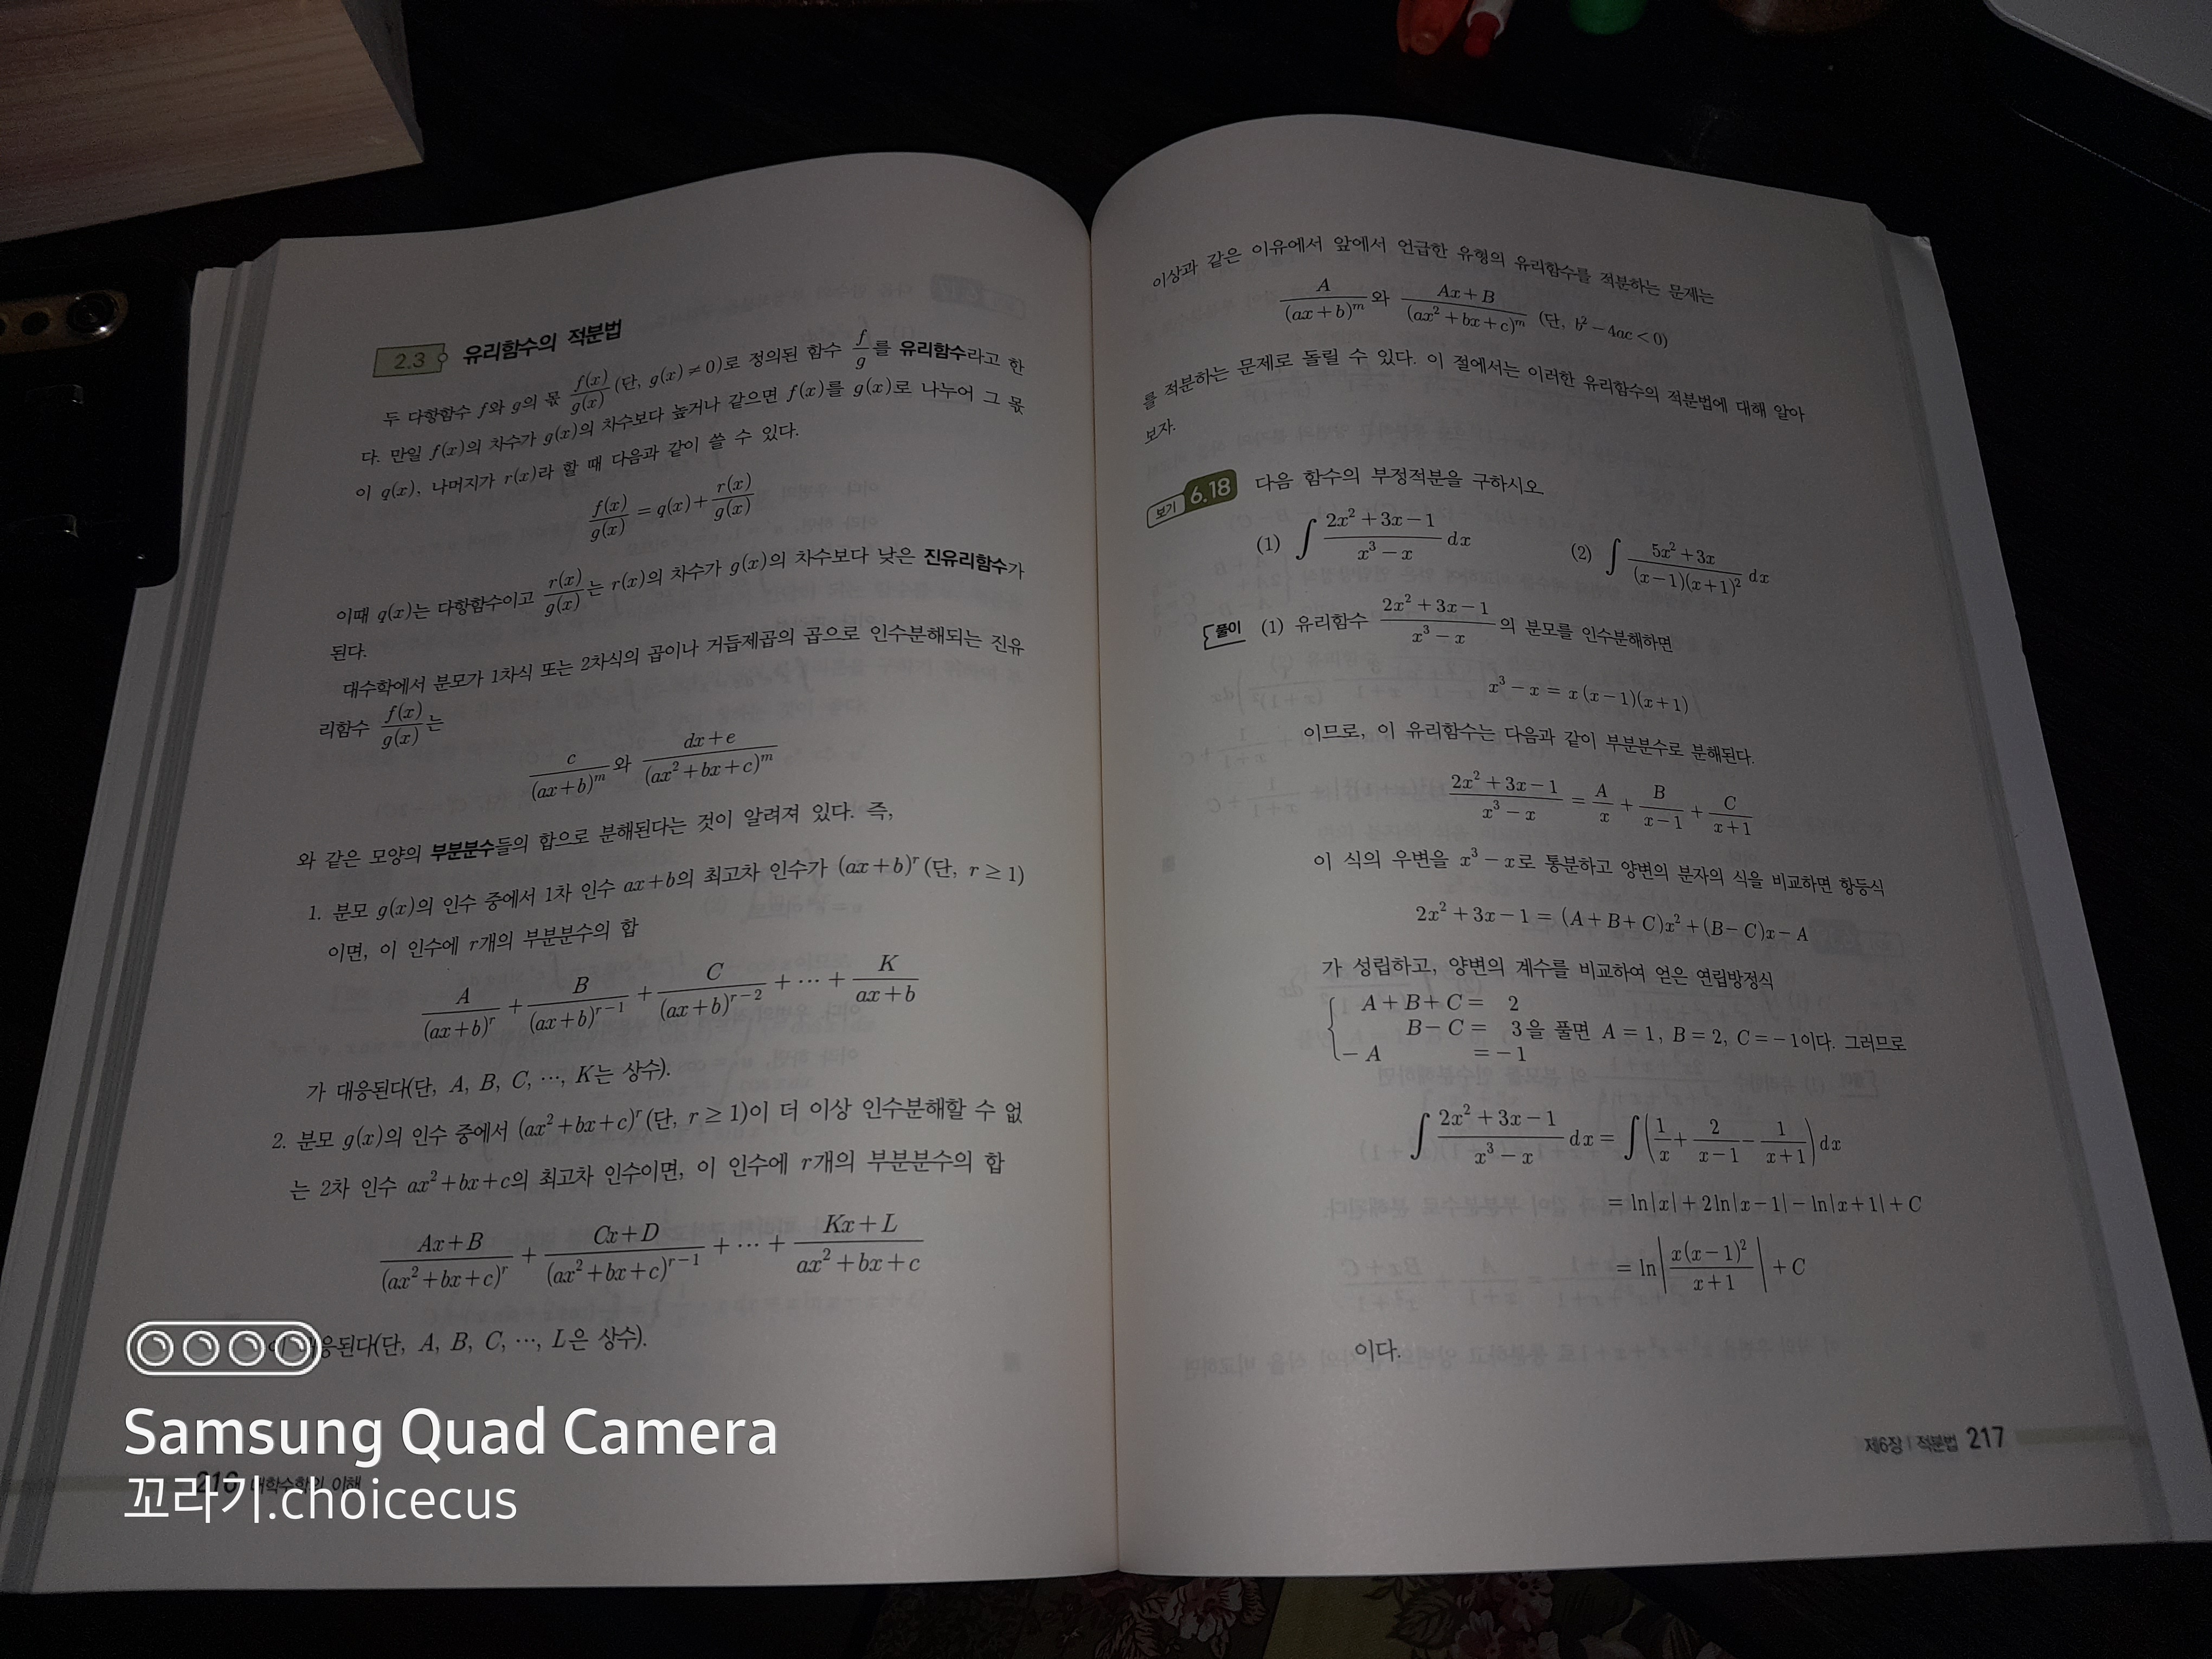 2.3 유리함수의 적분법
두 다항함수 f와 g의 몫 f(x)/g(x) (단, g(x) ≠ 0)로 정의된 함수 f/g를 유리함수라고 한
다. 만일 f(x)의 차수가 g(x)의 차수보다 높거나 같으면 f(x)를 g(x)로 나누어 그 몫
이 q(x), 나머지가 r(x)라 할 때 다음과 같이 쓸 수 있다.
f(x)/g(x) = q(x) + r(x)/g(x)
이때 q(x)는 다항함수이고 r(x)/g(x)는 r(x)의 차수가 g(x)의 차수보다 낮은 진유리함수가
된다.
대수학에서 분모가 1차식 또는 2차식의 곱이나 거듭제곱의 곱으로 인수분해되는 진유
리함수 f(x)/g(x)는
c/(ax+b)^m 와 (dx+e)/(ax²+bx+c)^m
와 같은 모양의 부분분수들의 합으로 분해된다는 것이 알려져 있다. 즉,
1. 분모 g(x)의 인수 중에서 1차 인수 ax+b의 최고차 인수가 (ax+b)^r (단, r ≥ 1)
이면, 이 인수에 r개의 부분분수의 합
A/(ax+b)^r + B/(ax+b)^(r-1) + C/(ax+b)^(r-2) + ⋯ + K/(ax+b)
가 대응된다(단, A, B, C, ⋯, K는 상수).
2. 분모 g(x)의 인수 중에서 (ax²+bx+c)^r (단, r ≥ 1)이 더 이상 인수분해할 수 없
는 2차 인수 ax²+bx+c의 최고차 인수이면, 이 인수에 r개의 부분분수의 합
(Ax+B)/(ax²+bx+c)^r + (Cx+D)/(ax²+bx+c)^(r-1) + ⋯ + (Kx+L)/(ax²+bx+c)
응된다(단, A, B, C, ⋯, L은 상수).
Samsung Quad Camera
꼬라기.choicecus
이상과 같은 이유에서 앞에서 언급한 유형의 유리함수를 적분하는 문제는
A/(ax+b)^m 와 (Ax+B)/(ax²+bx+c)^m (단, b²-4ac < 0)
를 적분하는 문제로 돌릴 수 있다. 이 절에서는 이러한 유리함수의 적분법에 대해 알아
보자.
보기 6.18 다음 함수의 부정적분을 구하시오.
(1) ∫ (2x²+3x-1)/(x³-x) dx (2) ∫ (5x²+3x)/((x-1)(x+1)²) dx
풀이 (1) 유리함수 (2x²+3x-1)/(x³-x)의 분모를 인수분해하면
x³-x = x(x-1)(x+1)
이므로, 이 유리함수는 다음과 같이 부분분수로 분해된다.
(2x²+3x-1)/(x³-x) = A/x + B/(x-1) + C/(x+1)
이 식의 우변을 x³-x로 통분하고 양변의 분자의 식을 비교하면 항등식
2x²+3x-1 = (A+B+C)x²+(B-C)x-A
가 성립하고, 양변의 계수를 비교하여 얻은 연립방정식
A+B+C = 2
B-C = 3을 풀면 A=1, B=2, C=-1이다. 그러므로
-A = -1
∫ (2x²+3x-1)/(x³-x) dx = ∫ (1/x + 2/(x-1) - 1/(x+1)) dx
= ln|x|+2ln|x-1|-ln|x+1|+C
= ln|x(x-1)²/(x+1)|+C
이다.
제6장 | 적분법 217